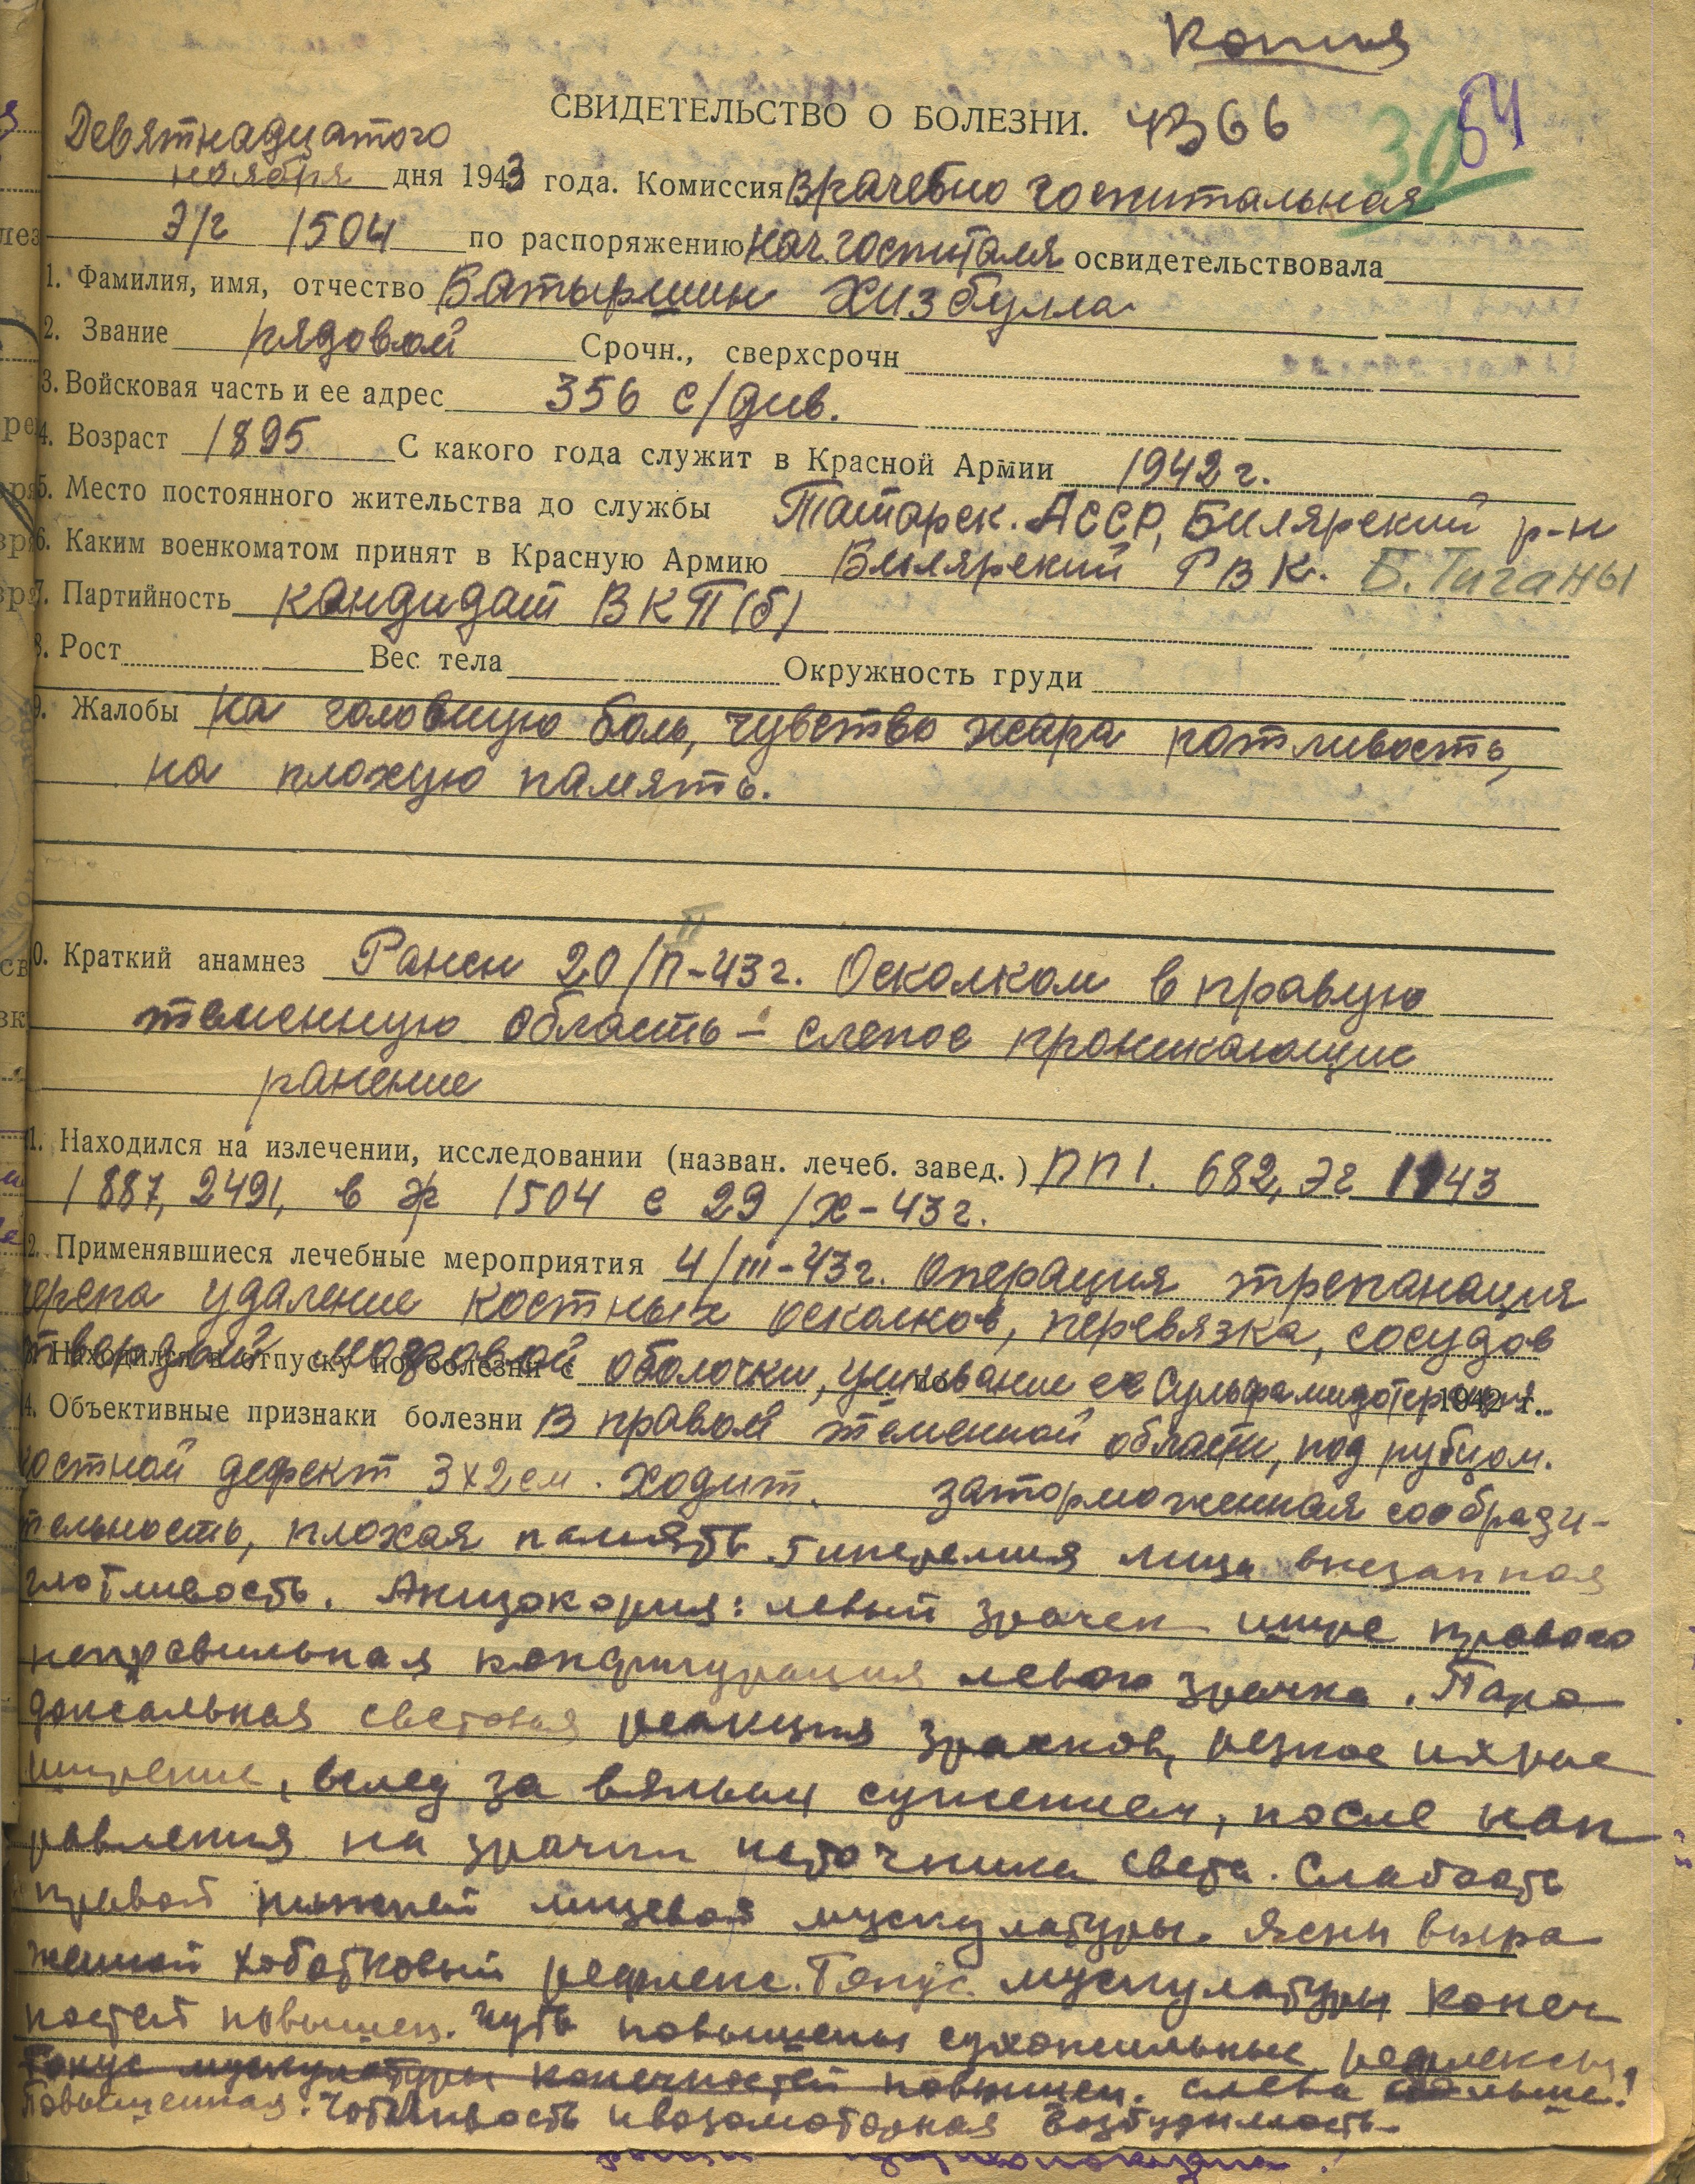 Копия
СВИДЕТЕЛЬСТВО О БОЛЕЗНИ. 4366 30 54
Девятнадцатого
ноября дня 1943 года. Комиссия Врачебно госпитальная
Э/г 1504 по распоряжению нач. госпиталя освидетельствовала
1. Фамилия, имя, отчество Батыршин Хизбулла
2. Звание рядовой Срочн., сверхсрочн
3. Войсковая часть и ее адрес 356 с/див.
4. Возраст 1895 С какого года служит в Красной Армии 1942 г.
5. Место постоянного жительства до службы Татарск. АССР, Билярский р-н
6. Каким военкоматом принят в Красную Армию Билярский РВК. Б. Тиганы
7. Партийность кандидат ВКП(б)
8. Рост Вес тела Окружность груди
9. Жалобы на головную боль, чувство жара потливость,
на плохую память.
0. Краткий анамнез Ранен 20/II-43 г. Осколком в правую
теменную область – слепое проникающие
ранение
1. Находился на излечении, исследовании (назван. лечеб. завед.) ППГ. 682, Эг 1143
1887, 2491, в эг 1504 с 29/X-43 г.
2. Применявшиеся лечебные мероприятия 4/III-43 г. Операция трепанация
черепа удаление костных осколков, перевязка, сосудов
3. Находился в отпуску по болезни с твердой мозговой оболочки, ушивание ее Сульфамидотерапия по 1942 г.
4. Объективные признаки болезни В правой теменной области, под рубцом.
костной дефект 3х2 см. Ходит. заторможенная сообрази-
тельность, плохая память. Гиперемия лица внезапная
потливость. Анизокория: левый зрачек шире правого
неправильная конфигурация левого зрачка. Пара
доксальная световая реакция зрачков, резкое их рас
ширение, вслед за вялым сужением, после нап
равления на зрачки источника света. Слабость
правой нижней лицевой мускулатуры. Ясно выра
женной хоботковый рефлекс. Тонус мускулатуры конеч
ностей повышен. Чуть повышены сухожильные рефлексы,
Тонус мускулатуры конечностей повышен. слева больше!
Повышенная потливость и вазомоторная возбудимость.